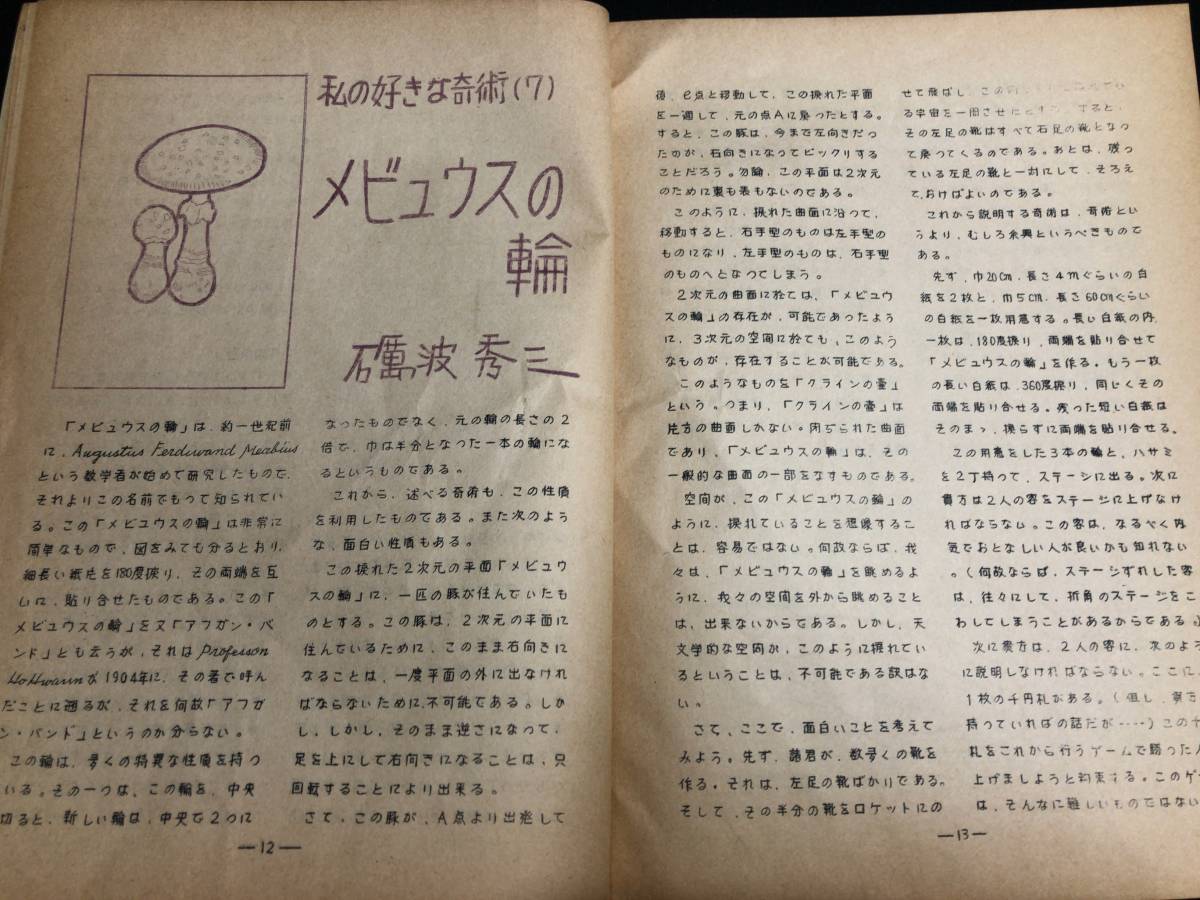 私の好きな奇術(7)
メビュウスの
輪
礪波 秀三
「メビュウスの輪」は、約一世紀前
に、Augustus Ferdiwand Meabius
という数学者が始めて研究したもので、
それよりこの名前でもって知られてい
る。この「メビュウスの輪」は非常に
簡単なもので、図をみても分るとおり、
細長い紙片を180度捩り、その両端を互
いに、貼り合せたものである。この「
メビュウスの輪」を又「アフガン・バ
ンド」とも云うが、それはProfesson
HoHwarinが1904年に、その著で呼ん
だことに遡るが、それを何故「アフガ
ン・バンド」というのか分らない。
この輪は、多くの特異な性質を持つ
いる。その一つは、この輪を、中央
切ると、新しい輪は、中央で2つに
なったものでなく、元の輪の長さの2
倍で、巾は半分となった一本の輪にな
るというものである。
これから、述べる奇術も、この性質
を利用したものである。また次のよう
な、面白い性質もある。
この捩れた2次元の平面「メビュウ
スの輪」に、一匹の豚が住んでいたも
のとする。この豚は、2次元の平面に
住んでいるために、このまま右向きに
なることは、一度平面の外に出なけれ
ばならないために、不可能である。しか
し、しかし、そのまま逆さになって、
足を上にして右向きになることは、只
回転することにより出来る。
さて、この豚が、A点より出発して
—12—
後、e点と移動して、この捩れた平面
を一週して、元の点Aに戻ったとする。
すると、この豚は、今まで左向きだっ
たのが、右向きになってビックリする
ことだろう。勿論、この平面は2次元
のために裏も表もないのである。
このように、捩れた曲面に沿って、
移動すると、右手型のものは左手型の
ものになり、左手型のものは、右手型
のものへとなってしまう。
2次元の曲面に於ては、「メビュウ
スの輪」の存在が、可能であったよう
に、3次元の空間に於ても、このよう
なものが、存在することが可能である。
このようなものを「クラインの壷」
という。つまり、「クラインの壷」は
片方の曲面しかない。閉ぢられた曲面
であり、「メビュウスの輪」は、その
一般的な曲面の一部をなすものである。
空間が、この「メビュウスの輪」の
ように、捩れていることを想像するこ
とは、容易ではない。何故ならば、我
々は、「メビュウスの輪」を眺めるよ
うに、我々の空間を外から眺めること
は、出来ないからである。しかし、天
文学的な空間が、このように捩れてい
るということは、不可能である訳はな
い。
さて、ここで、面白いことを考えて
みよう。先ず、諸君が、数多くの靴を
作る。それは、左足の靴ばかりである。
そして、その半分の靴をロケットにの
せて飛ばし、この
る宇宙を一周させ すると、
その左足の靴はすべて右足の靴となっ
て戻ってくるのである。あとは、残っ
ている左足の靴と一対にして、そろえ
て、おけばよいのである。
これから説明する奇術は、奇術とい
うより、むしろ余興というべきもので
ある。
先ず、巾20cm、長さ4mぐらいの白
紙を2枚と、巾5cm、長さ60cmぐらい
の白紙を一枚用意する。長い白紙の内、
一枚は、180度捩り、両端を貼り合せて
「メビュウスの輪」を作る。もう一枚
の長い白紙は、360度捩り、同じくその
両端を貼り合せる。残った短い白紙は
そのまゝ、捩らずに両端を貼り合せる。
この用意をした3本の輪と、ハサミ
を2丁持って、ステージに出る。次に
貴方は2人の客をステージに上げなけ
ればならない。この客は、なるべく内
気でおとなしい人が良いかも知れない
。(何故ならば、ステージずれした客
は、往々にして、折角のステージをこ
わしてしまうことがあるからである。)
次に貴方は、2人の客に、次のよう
に説明しなければならない。ここに、
1枚の千円札がある。(但し、
持っていればの話だが‥‥)この千
札をこれから行うゲームで勝った人
上げましょうと約束する。このゲ
は、そんなに難しいものではない
—13—